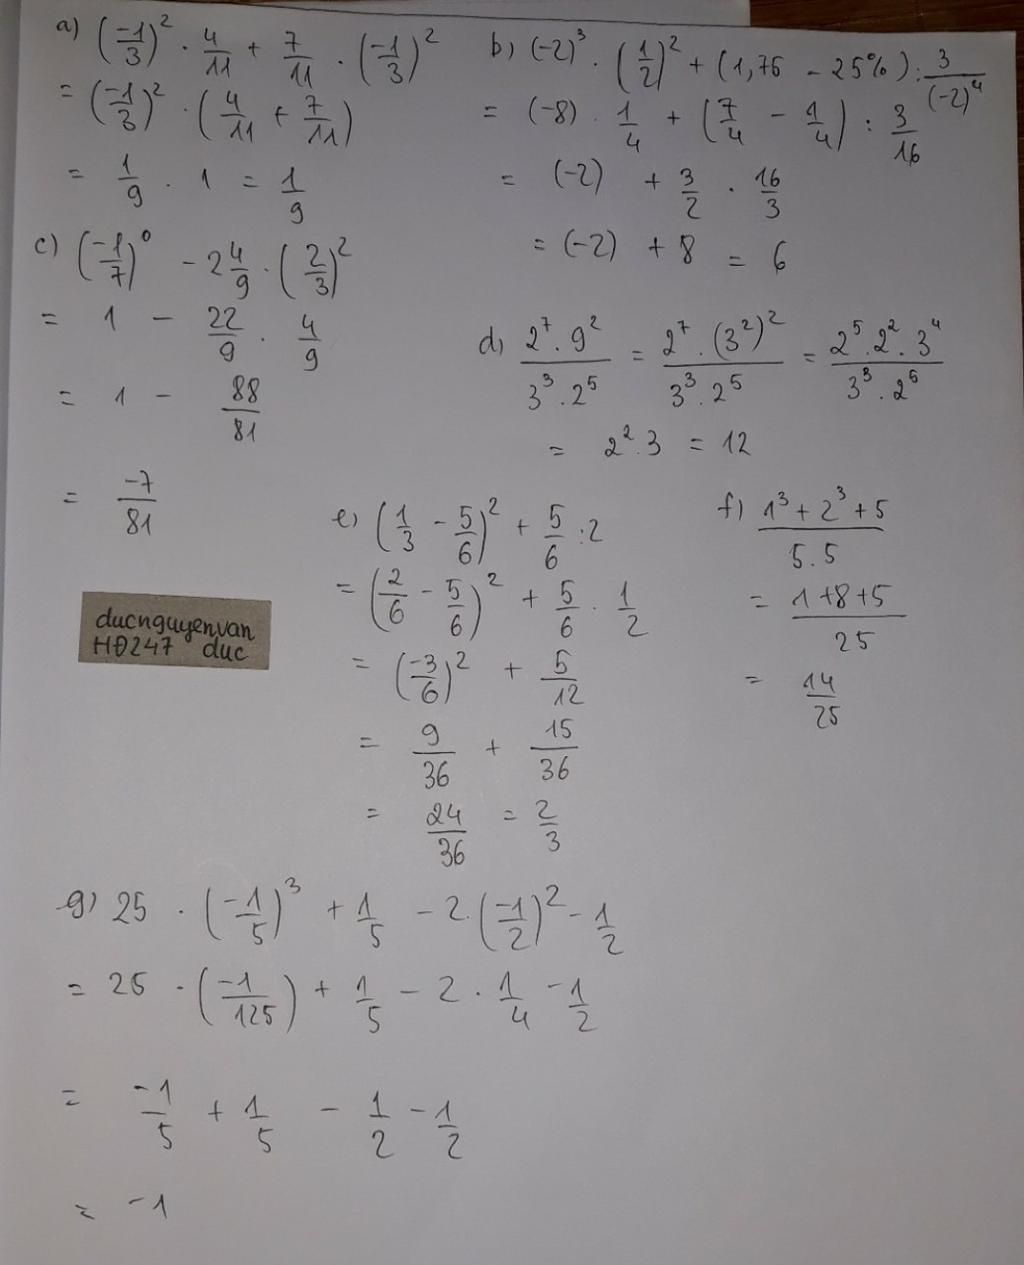 a) (-1/3)² . 4/11 + 7/11 . (-1/3)²
= (-1/3)² . (4/11 + 7/11)
= 1/9 . 1 = 1/9
b) (-2)³ . (1/2)² + (1,75 - 25%) : 3/(-2)⁴
= (-8) . 1/4 + (7/4 - 1/4) : 3/16
= (-2) + 3/2 . 16/3
= (-2) + 8 = 6
c) (-1/7)⁰ - 2 4/9 . (2/3)²
= 1 - 22/9 . 4/9
= 1 - 88/81
= -7/81
d) 2⁷ . 9² / 3³ . 2⁵ = 2⁷ . (3²)² / 3³ . 2⁵ = 2⁵ . 2² . 3⁴ / 3³ . 2⁵
= 2² . 3 = 12
e) (1/3 - 5/6)² + 5/6 : 2
= (2/6 - 5/6)² + 5/6 . 1/2
= (-3/6)² + 5/12
= 9/36 + 15/36
= 24/36 = 2/3
f) 1³ + 2³ + 5 / 5 . 5
= 1 + 8 + 5 / 25
= 14/25
ducnguyenvan
HĐ247 duc
g) 25 . (-1/5)³ + 1/5 - 2 . (-1/2)² - 1/2
= 25 . (-1/125) + 1/5 - 2 . 1/4 - 1/2
= -1/5 + 1/5 - 1/2 - 1/2
= -1